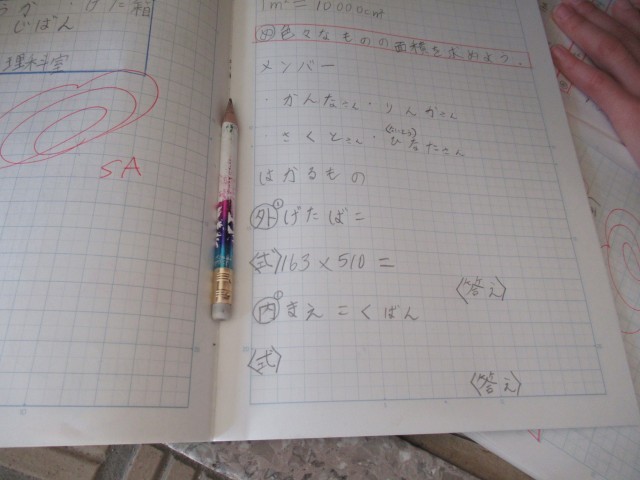 じばん
理科室
SA
1m²=10000cm²
め 色々なものの面積を求めよう。
メンバー
・かんなさん・りんかさん
・さくとさん・ひなたさん
はかるもの
外① げたばこ
〈式〉163×510=
〈答え〉
内① まえこくばん
〈式〉
〈答え〉